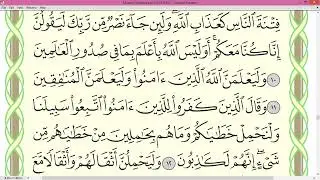 فِتْنَةَ ٱلنَّاسِ كَعَذَابِ ٱللَّهِ وَلَئِن جَآءَ نَصْرٌ مِّن رَّبِّكَ لَيَقُولُنَّ
إِنَّا كُنَّا مَعَكُمْ أَوَلَيْسَ ٱللَّهُ بِأَعْلَمَ بِمَا فِى صُدُورِ ٱلْعَٰلَمِينَ
١٠ وَلَيَعْلَمَنَّ ٱللَّهُ ٱلَّذِينَ ءَامَنُوا۟ وَلَيَعْلَمَنَّ ٱلْمُنَٰفِقِينَ
١١ وَقَالَ ٱلَّذِينَ كَفَرُوا۟ لِلَّذِينَ ءَامَنُوا۟ ٱتَّبِعُوا۟ سَبِيلَنَا
وَلْنَحْمِلْ خَطَٰيَٰكُمْ وَمَا هُم بِحَٰمِلِينَ مِنْ خَطَٰيَٰهُم مِّن
شَىْءٍ إِنَّهُمْ لَكَٰذِبُونَ ١٢ وَلَيَحْمِلُنَّ أَثْقَالَهُمْ وَأَثْقَالًا مَّعَ